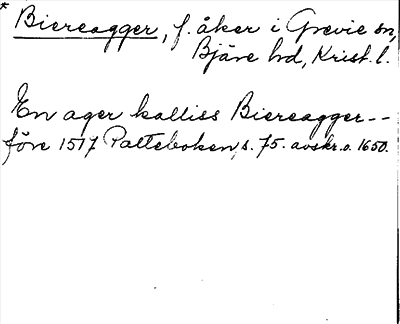 * Biereagger, f. åker i Grevie sn,
Bjäre hd, Krist. l.
En ager kalliss Biereagger--
före 1517 Palteboken, s. 75. avskr. o. 1650.